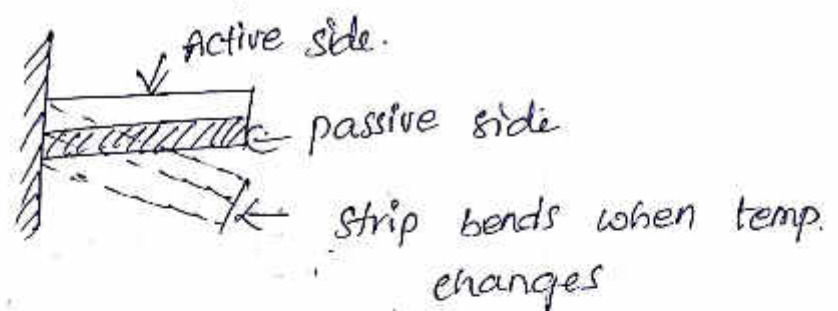 Active side.
passive side
strip bends when temp.
changes